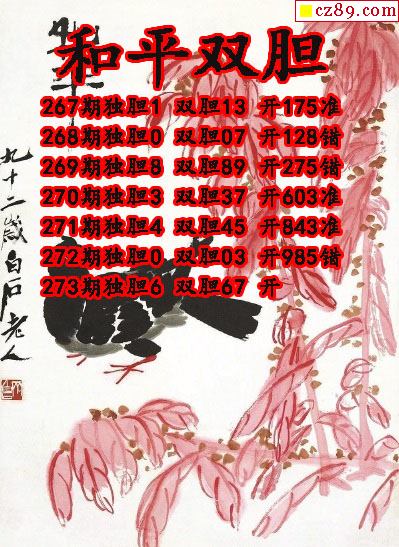 cz89.com
和平双胆
267期独胆1 双胆13 开175准
268期独胆0 双胆07 开128错
269期独胆8 双胆89 开275错
270期独胆3 双胆37 开603准
271期独胆4 双胆45 开843准
272期独胆0 双胆03 开985错
273期独胆6 双胆67 开
九十二岁白石老人